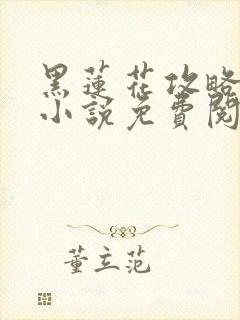 黑蓮花攻略
小說免費閱
董立范